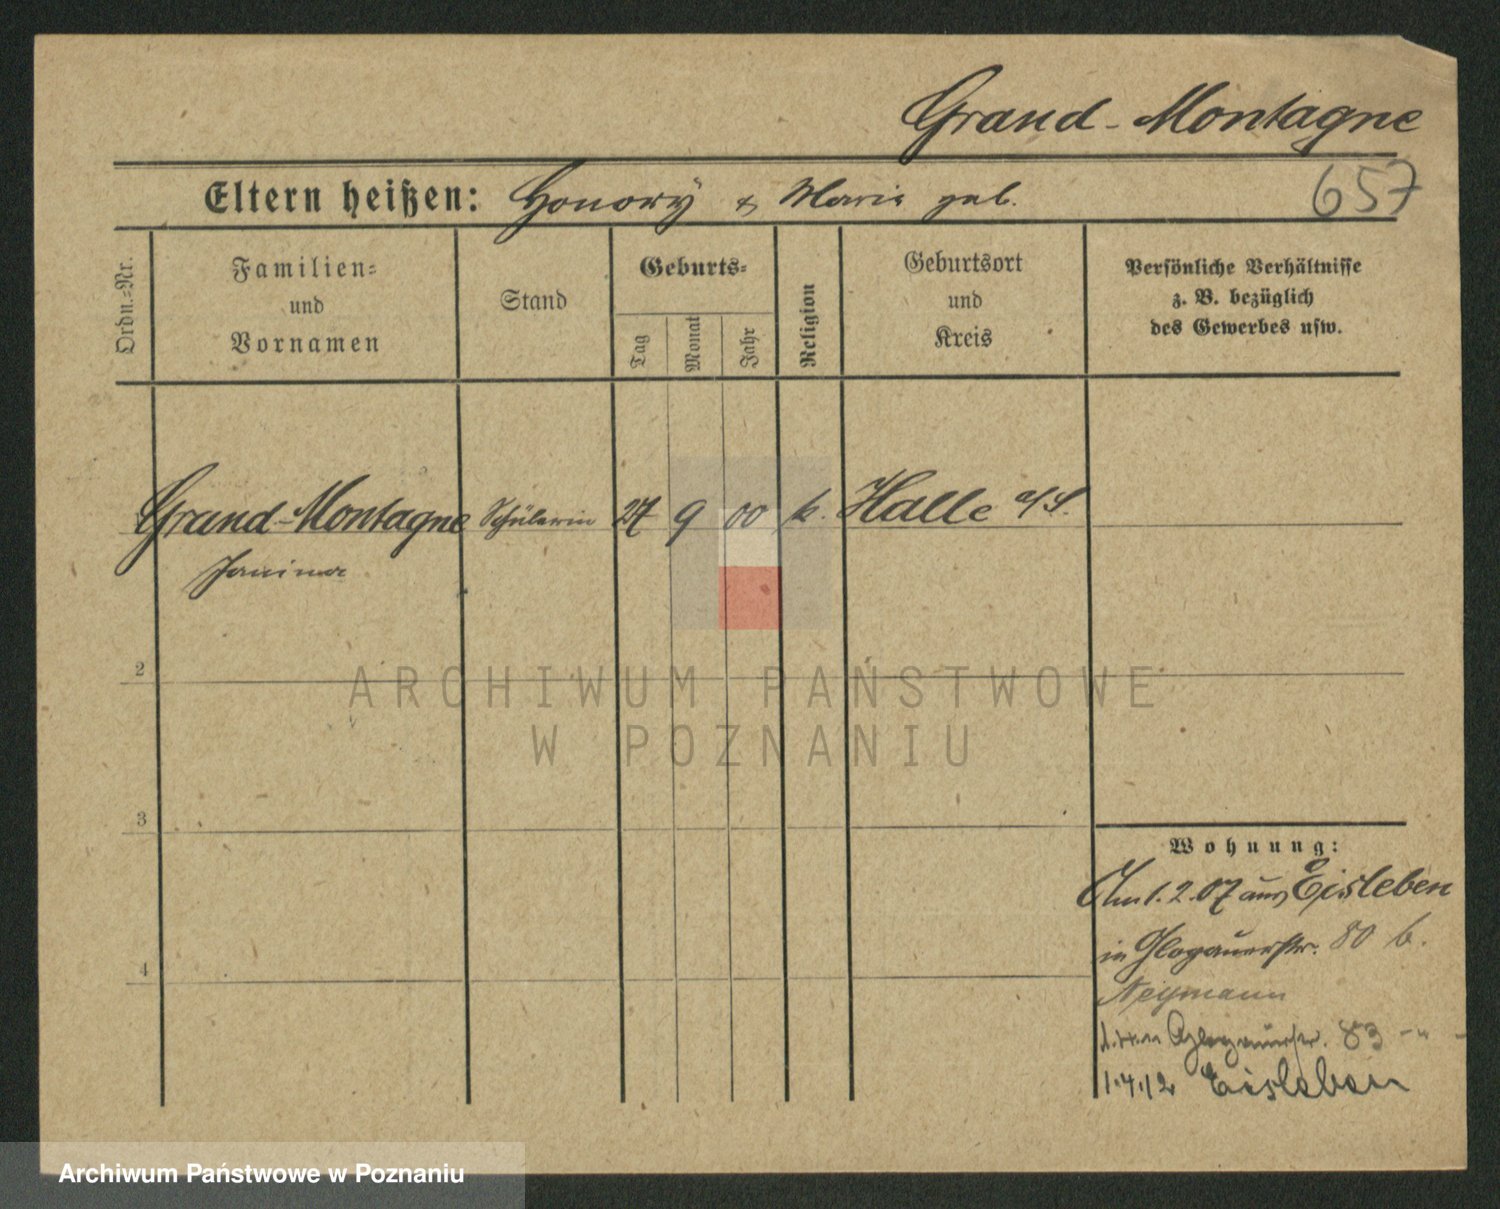 Grand-Montagne
657
Eltern heißen: Honory & Marie geb.
Ordn.-Nr.
Familien-
und
Vornamen
Stand
Geburts-
Tag
Monat
Jahr
Religion
Geburtsort
und
Kreis
Persönliche Verhältnisse
z. B. bezüglich
des Gewerbes usw.
Grand-Montagne Schülerin 27 9 00 k. Halle a/S.
Janina
2
3
4
Wohnung:
Am 1. 2. 07 aus Eisleben
in Glogauerstr. 80 b.
Neymann
Glogauerstr. 83 - " -
1.4.12 Eisleben
ARCHIWUM PAŃSTWOWE
W POZNANIU
Archiwum Państwowe w Poznaniu